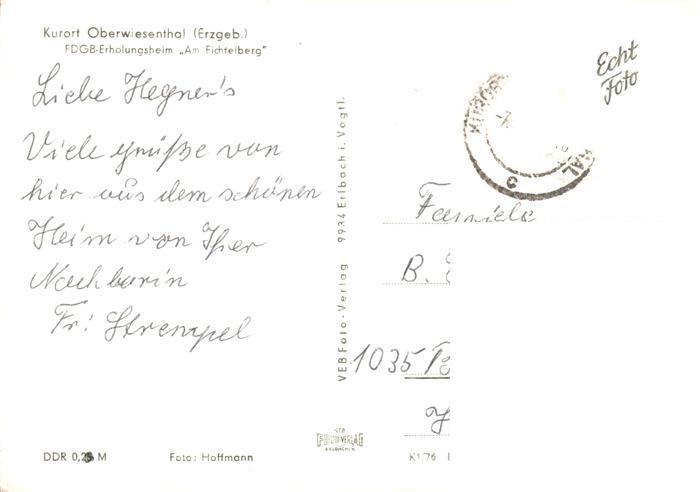 Kurort Oberwiesenthal (Erzgeb.)
FDGB-Erholungsheim „Am Fichtelberg"
Liebe Hegner's
Viele grüße von
hier aus dem schönen
Heim von Ihrer
Nachbarin
Fr: Strempel
DDR 0,25 M
Foto: Hoffmann
VEB Foto-Verlag 9934 Erlbach i. Vogtl.
FOTO VERLAG
ERLBACH
Echt
Foto
Familie
B.
1035
K1/76